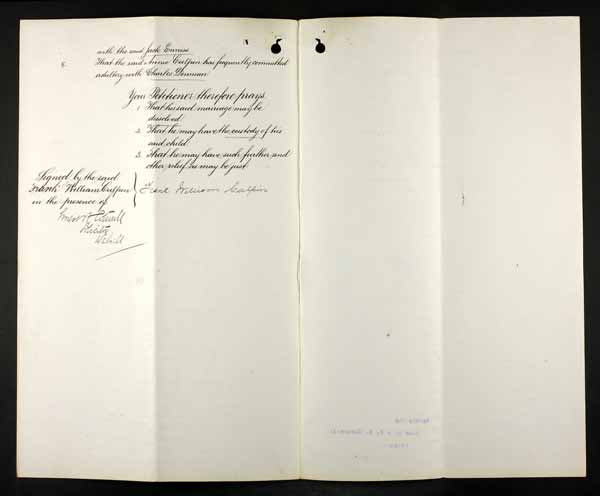 with the said Jack Ennis
8. That the said Annie Culpin has frequently committed
adultery with Charles Denman
Your Petitioner therefore prays
1 That his said marriage may be
dissolved
2. That he may have the custody of his
said child
3. That he may have such further and
other relief as may be just.
Signed by the said
Frank William Culpin
in the presence of
Frank William Culpin
Solicitor
Walsall